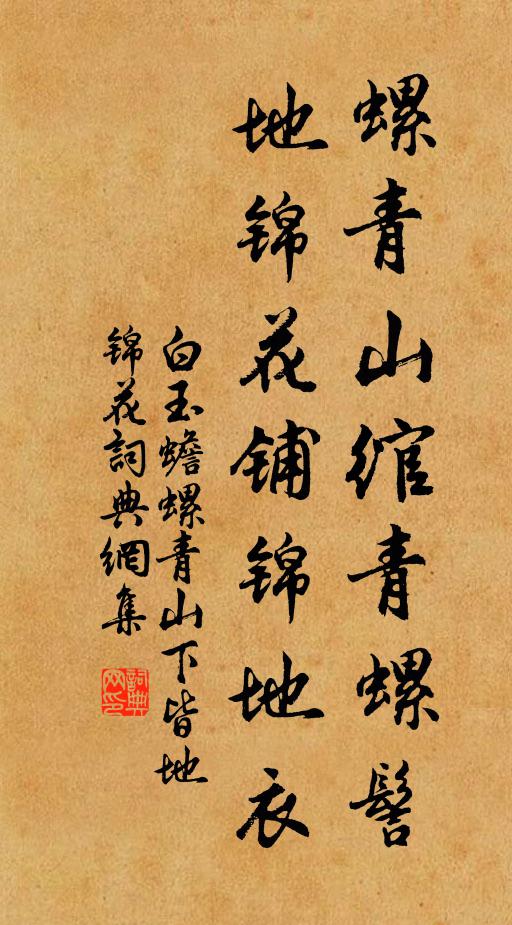 螺青山绾青螺髻
地锦花铺锦地衣
白玉蟾螺青山下皆地
锦花詞典網集
詞典网印